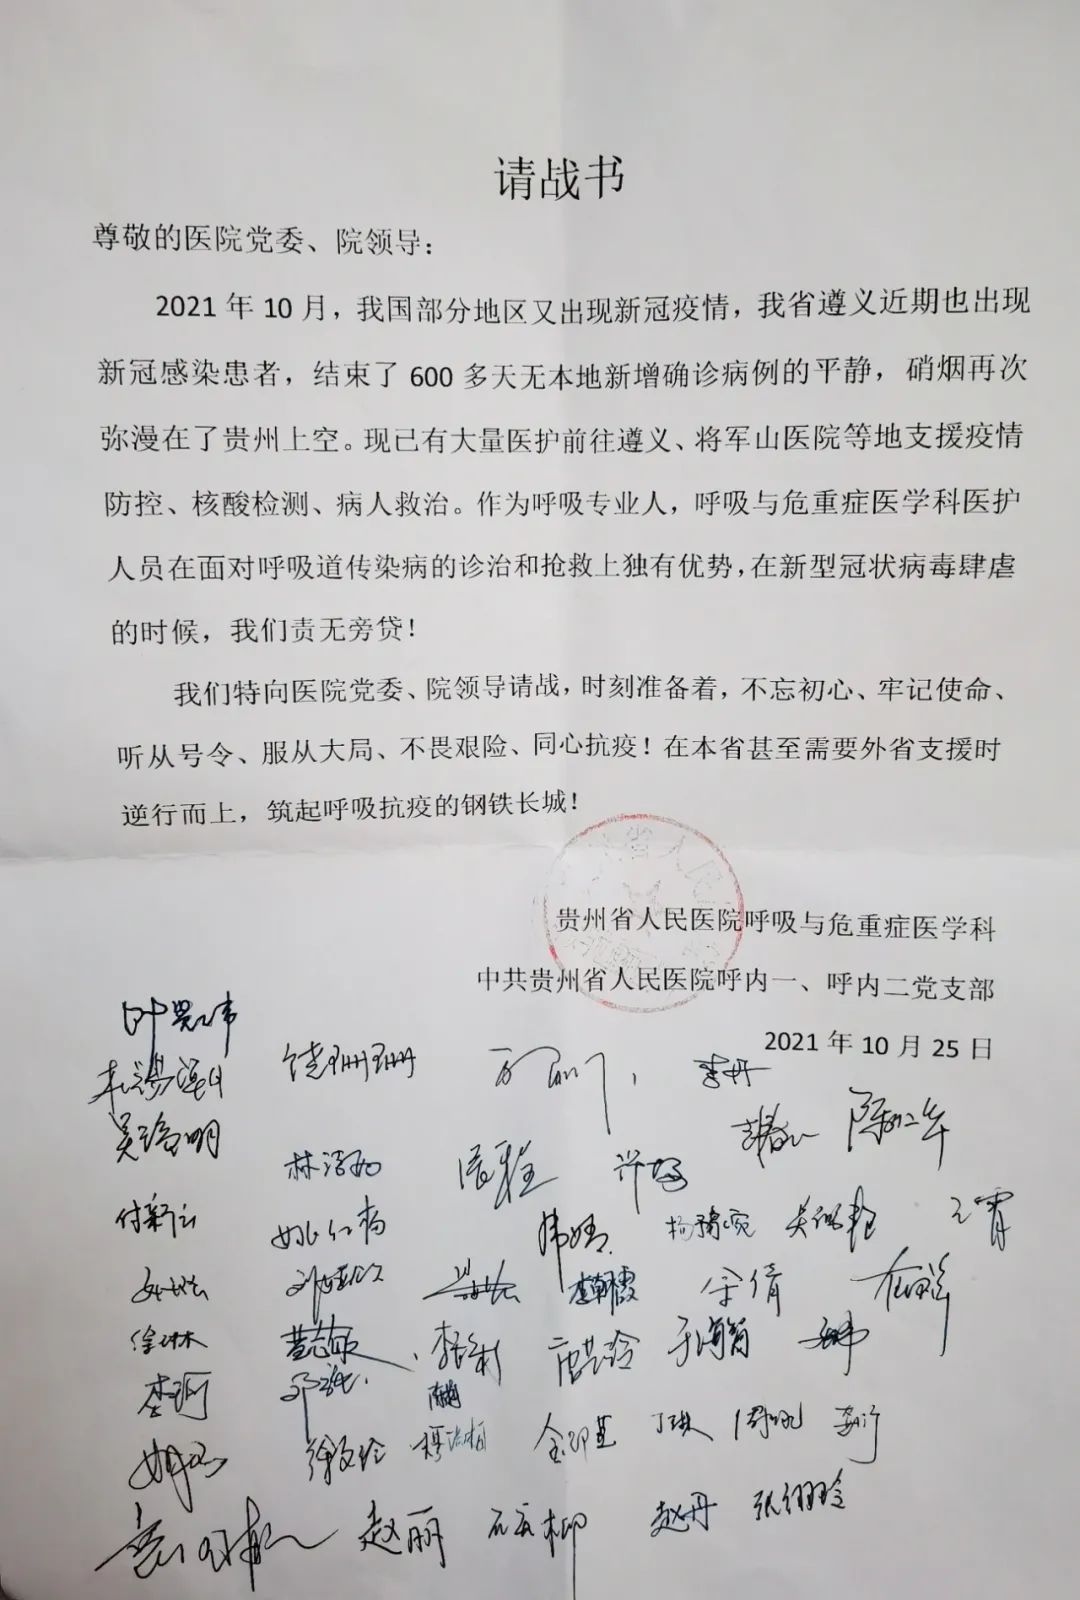 请战书
尊敬的医院党委、院领导：
2021 年 10 月，我国部分地区又出现新冠疫情，我省遵义近期也出现
新冠感染患者，结束了 600 多天无本地新增确诊病例的平静，硝烟再次
弥漫在了贵州上空。现已有大量医护前往遵义、将军山医院等地支援疫情
防控、核酸检测、病人救治。作为呼吸专业人，呼吸与危重症医学科医护
人员在面对呼吸道传染病的诊治和抢救上独有优势，在新型冠状病毒肆虐
的时候，我们责无旁贷！
我们特向医院党委、院领导请战，时刻准备着，不忘初心、牢记使命、
听从号令、服从大局、不畏艰险、同心抗疫！在本省甚至需要外省支援时
逆行而上，筑起呼吸抗疫的钢铁长城！
省人民
贵州省人民医院呼吸与危重症医学科
中共贵州省人民医院呼内一、呼内二党支部
2021 年 10 月 25 日
饶珊珊 李丹
付新云 姚红梅 韩婧
李朝霞 余倩
徐琳 董志敏 唐芸玲
李珂 邓
丁琳
赵丽 石云柳 赵丹 张翎玲